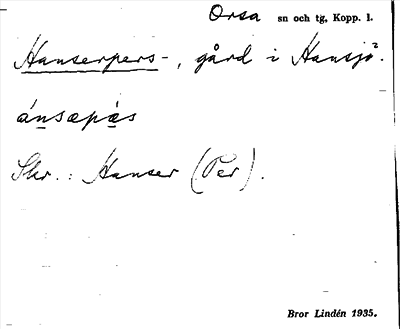 Orsa sn och tg, Kopp. l.
Hanserpers-, gård i Hansjö.
ánsæpæ̀s
Skr.: Hanser (Per).
Bror Lindén 1935.